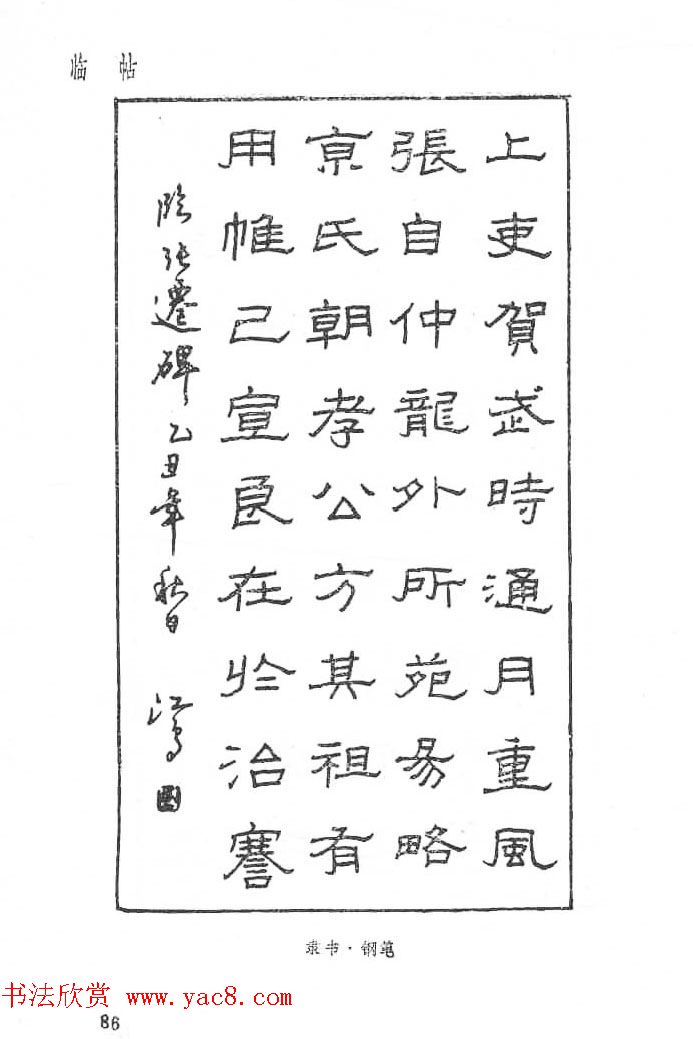 临帖
上吏賀武時通月重風
張自仲龍外所苑易略
京氏朝孝公方其祖有
用帷己宣良在於治謇
临张遷碑乙丑年秋日 江鸟
隶书·钢笔
书法欣赏 www.yac8.com
86